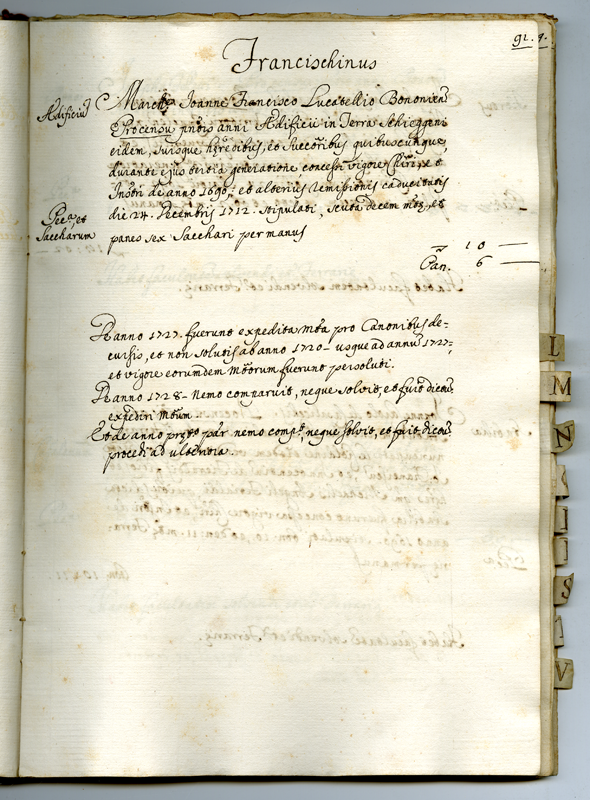 91. 9.
Francischinus
Ædificiū
March. Joanne Francisco Lucatellio Bononien
anni Ædificii in Terra Schieggeni
eidem, suisque hæredibus, et Successoribus quibuscunque,
durante ejus tertia generatione concessi vigore
de anno 1690: et alterius remissionis caducitatis
die 24. Decembris 1712. stipulati, scuta decem
Pec.ᵃ et
Saccharum
panes sex Sacchari per manus
10 —
Pan. 6 —
De anno 1727. fuerunt expedita Mta pro Canonibus de-
cursis, et non solutis ab anno 1720 - usque ad annū 1727:
et vigore eorumdem Mtorum fuerunt persoluti.
De anno 1728 - Nemo comparuit, neque solvit, et fuit dictū
expediri Mtum.
Et de anno pnti par. nemo comp.ᵗ, neque solvit, et fuit dictū
procedi ad ulteriora.
L
M
N
S
V